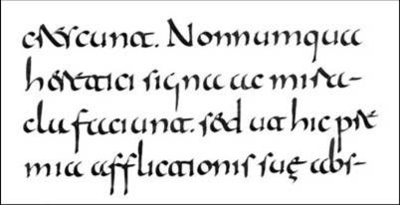 crescunt. Nonnumqua
heretici signa ac mira-
cla faciunt. sed ut hic pre
mia afflictionis suę abs-